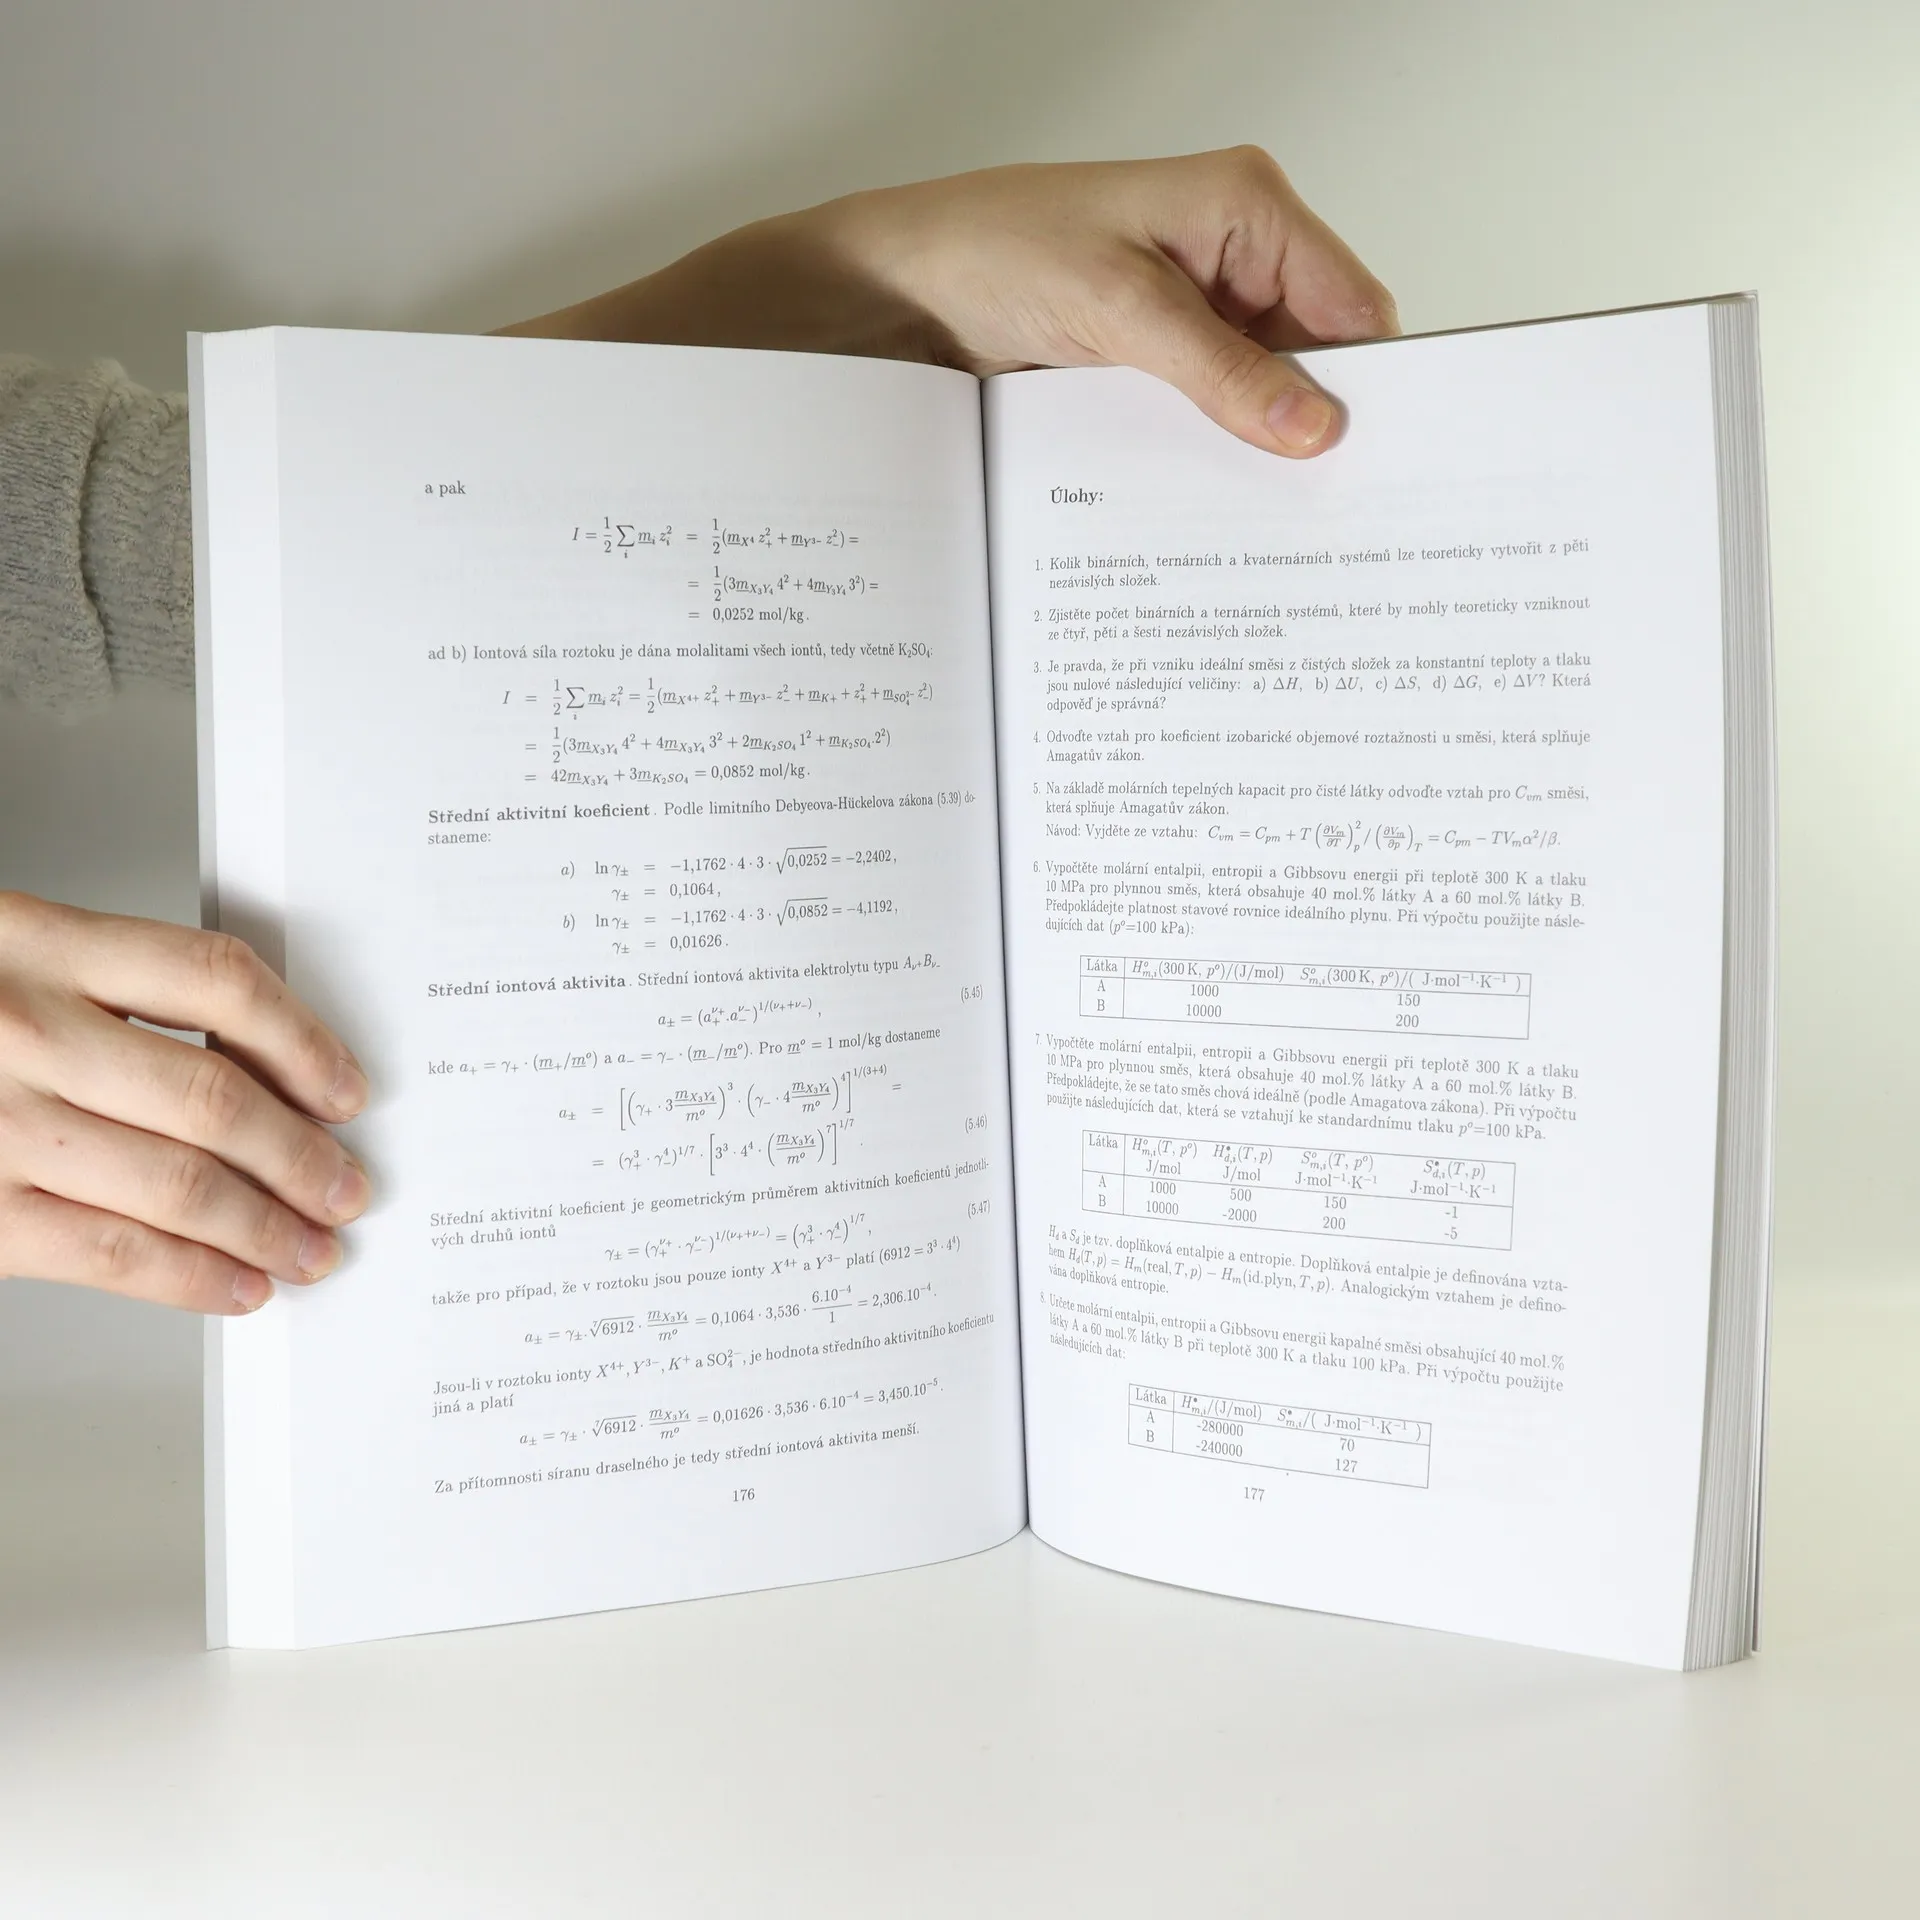 a pak
I = 1/2 ∑_i m_i z_i^2 = 1/2 (m_{X^4} z_+^2 + m_{Y^{3-}} z_-^2) =
= 1/2 (3m_{X_3Y_4} 4^2 + 4m_{Y_3Y_4} 3^2) =
= 0,0252 mol/kg .
ad b) Iontová síla roztoku je dána molalitami všech iontů, tedy včetně K_2SO_4:
I = 1/2 ∑_i m_i z_i^2 = 1/2 (m_{X^{4+}} z_+^2 + m_{Y^{3-}} z_-^2 + m_{K+} + z_+^2 + m_{SO_4^{2-}} z_-^2)
= 1/2 (3m_{X_3Y_4} 4^2 + 4m_{X_3Y_4} 3^2 + 2m_{K_2SO_4} 1^2 + m_{K_2SO_4}.2^2)
= 42m_{X_3Y_4} + 3m_{K_2SO_4} = 0,0852 mol/kg .
Střední aktivitní koeficient. Podle limitního Debyeova-Hückelova zákona (5.39) do-
staneme:
a) ln γ_± = −1,1762 · 4 · 3 · √0,0252 = −2,2402 ,
γ_± = 0,1064 ,
b) ln γ_± = −1,1762 · 4 · 3 · √0,0852 = −4,1192 ,
γ_± = 0,01626 .
Střední iontová aktivita. Střední iontová aktivita elektrolytu typu A_{ν+}B_{ν-}
a_± = (a_+^{ν+}.a_-^{ν-})^{1/(ν_+ + ν_-)} , (5.45)
kde a_+ = γ_+ · (m_+/m°) a a_- = γ_- · (m_-/m°). Pro m° = 1 mol/kg dostaneme
a_± = [(γ_+ · 3 m_{X_3Y_4}/m°)^3 · (γ_- · 4 m_{X_3Y_4}/m°)^4]^{1/(3+4)} =
= (γ_+^3 · γ_-^4)^{1/7} · [3^3 · 4^4 · (m_{X_3Y_4}/m°)^7]^{1/7} . (5.46)
Střední aktivitní koeficient je geometrickým průměrem aktivitních koeficientů jednotli-
vých druhů iontů
γ_± = (γ_+^{ν+} · γ_-^{ν-})^{1/(ν_+ + ν_-)} = (γ_+^3 · γ_-^4)^{1/7} , (5.47)
takže pro případ, že v roztoku jsou pouze ionty X^{4+} a Y^{3−} platí (6912 = 3^3 · 4^4)
a_± = γ_±. ⁷√6912 · m_{X_3Y_4}/m° = 0,1064 · 3,536 · 6.10^{−4}/1 = 2,306.10^{−4} .
Jsou-li v roztoku ionty X^{4+}, Y^{3−}, K^+ a SO_4^{2−}, je hodnota středního aktivitního koeficientu
jiná a platí
a_± = γ_± · ⁷√6912 · m_{X_3Y_4}/m° = 0,01626 · 3,536 · 6.10^{−4} = 3,450.10^{−5} .
Za přítomnosti síranu draselného je tedy střední iontová aktivita menší.
176
Úlohy:
1. Kolik binárních, ternárních a kvaternárních systémů lze teoreticky vytvořit z pěti
nezávislých složek.
2. Zjistěte počet binárních a ternárních systémů, které by mohly teoreticky vzniknout
ze čtyř, pěti a šesti nezávislých složek.
3. Je pravda, že při vzniku ideální směsi z čistých složek za konstantní teploty a tlaku
jsou nulové následující veličiny: a) ΔH, b) ΔU, c) ΔS, d) ΔG, e) ΔV? Která
odpověď je správná?
4. Odvoďte vztah pro koeficient izobarické objemové roztažnosti u směsi, která splňuje
Amagatův zákon.
5. Na základě molárních tepelných kapacit pro čisté látky odvoďte vztah pro C_{vm} směsi,
která splňuje Amagatův zákon.
Návod: Vyjděte ze vztahu: C_{vm} = C_{pm} + T (∂V_m/∂T)_p^2 / (∂V_m/∂p)_T = C_{pm} − TV_mα^2/β.
6. Vypočtěte molární entalpii, entropii a Gibbsovu energii při teplotě 300 K a tlaku
10 MPa pro plynnou směs, která obsahuje 40 mol.% látky A a 60 mol.% látky B.
Předpokládejte platnost stavové rovnice ideálního plynu. Při výpočtu použijte násle-
dujících dat (p°=100 kPa):
Látka H°_{m,i}(300 K, p°)/(J/mol) S°_{m,i}(300 K, p°)/( J·mol^{−1}·K^{−1} )
A 1000 150
B 10000 200
7. Vypočtěte molární entalpii, entropii a Gibbsovu energii při teplotě 300 K a tlaku
10 MPa pro plynnou směs, která obsahuje 40 mol.% látky A a 60 mol.% látky B.
Předpokládejte, že se tato směs chová ideálně (podle Amagatova zákona). Při výpočtu
použijte následujících dat, která se vztahují ke standardnímu tlaku p°=100 kPa.
Látka H°_{m,i}(T, p°) H^•_{d,i}(T, p) S°_{m,i}(T, p°) S^•_{d,i}(T, p)
J/mol J/mol J·mol^{−1}·K^{−1} J·mol^{−1}·K^{−1}
A 1000 500 150 -1
B 10000 -2000 200 -5
H_d a S_d je tzv. doplňková entalpie a entropie. Doplňková entalpie je definována vzta-
hem H_d(T, p) = H_m(real, T, p) − H_m(id.plyn, T, p). Analogickým vztahem je defino-
vána doplňková entropie.
8. Určete molární entalpii, entropii a Gibbsovu energii kapalné směsi obsahující 40 mol.%
látky A a 60 mol.% látky B při teplotě 300 K a tlaku 100 kPa. Při výpočtu použijte
následujících dat:
Látka H^•_{m,i}/(J/mol) S^•_{m,i}/( J·mol^{−1}·K^{−1} )
A -280000 70
B -240000 127
177